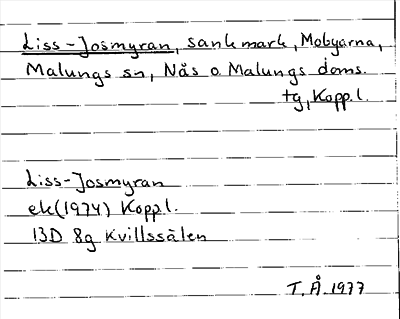 Liss-Josmyran, sank mark, Mobyarna,
Malungs sn, Nås o Malungs doms.
tg, Koppl.
Liss-Josmyran
ek (1974) Koppl.
13D 8g Kvillssälen
T.Å. 1977